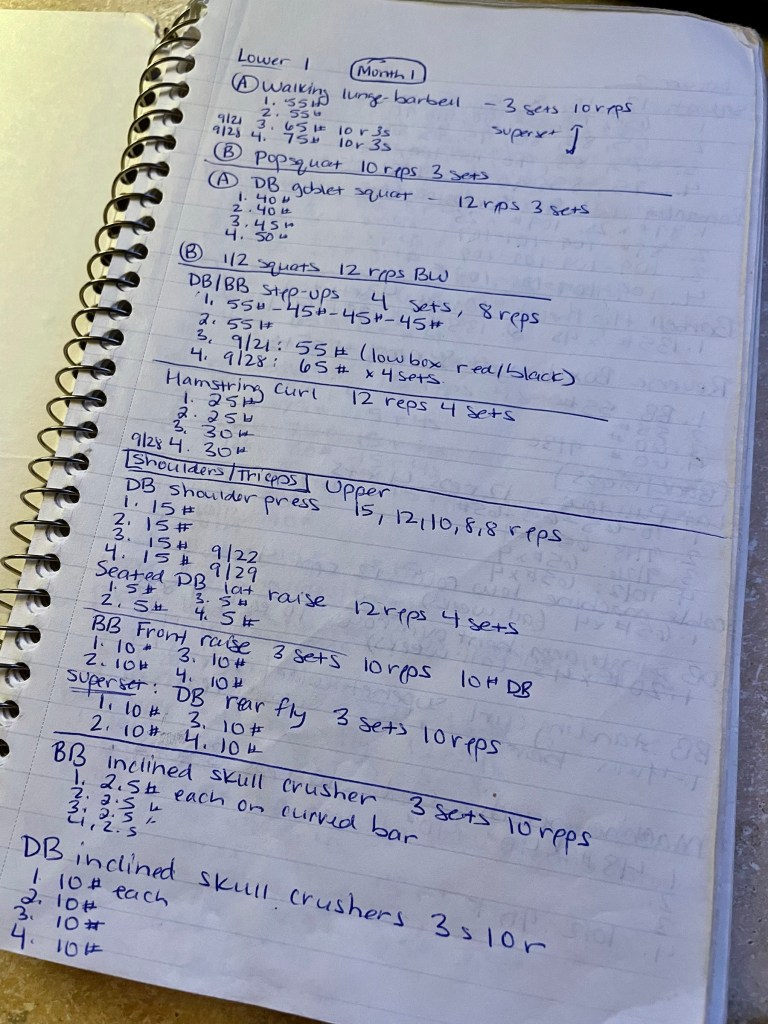 Lower 1 Month 1
(A) Walking lunge-barbell - 3 sets 10 reps
1. 55#
2. 55# superset
9/21 3. 65# 10 r 3s
9/28 4. 75# 10 r 3s
(B) Pop squat 10 reps 3 sets
(A) DB goblet squat - 12 rps 3 sets
1. 40#
2. 40#
3. 45#
4. 50#
(B) 1/2 squats 12 reps BW
DB/BB step-ups 4 sets, 8 reps
1. 55# - 45# - 45# - 45#
2. 55#
3. 9/21: 55# (low box red/black)
4. 9/28: 65# x 4 sets
Hamstring curl 12 reps 4 sets
1. 25#
2. 25#
3. 30#
9/28 4. 30#
Shoulders/Triceps Upper
DB shoulder press 15, 12, 10, 8, 8 reps
1. 15#
2. 15#
3. 15# 9/22
4. 15# 9/29
Seated DB lat raise 12 reps 4 sets
1. 5# 3. 5#
2. 5# 4. 5#
BB Front raise 3 sets 10 reps 10# DB
1. 10# 3. 10#
2. 10# 4. 10#
Superset: DB rear fly 3 sets 10 reps
1. 10# 3. 10#
2. 10# 4. 10#
BB inclined skull crusher 3 sets 10 reps
1. 2.5# each on curved bar
2. 2.5 "
3. 2.5 "
4. 2.5
DB inclined skull crushers 3 s 10 r
1. 10# each
2. 10#
3. 10#
4. 10#